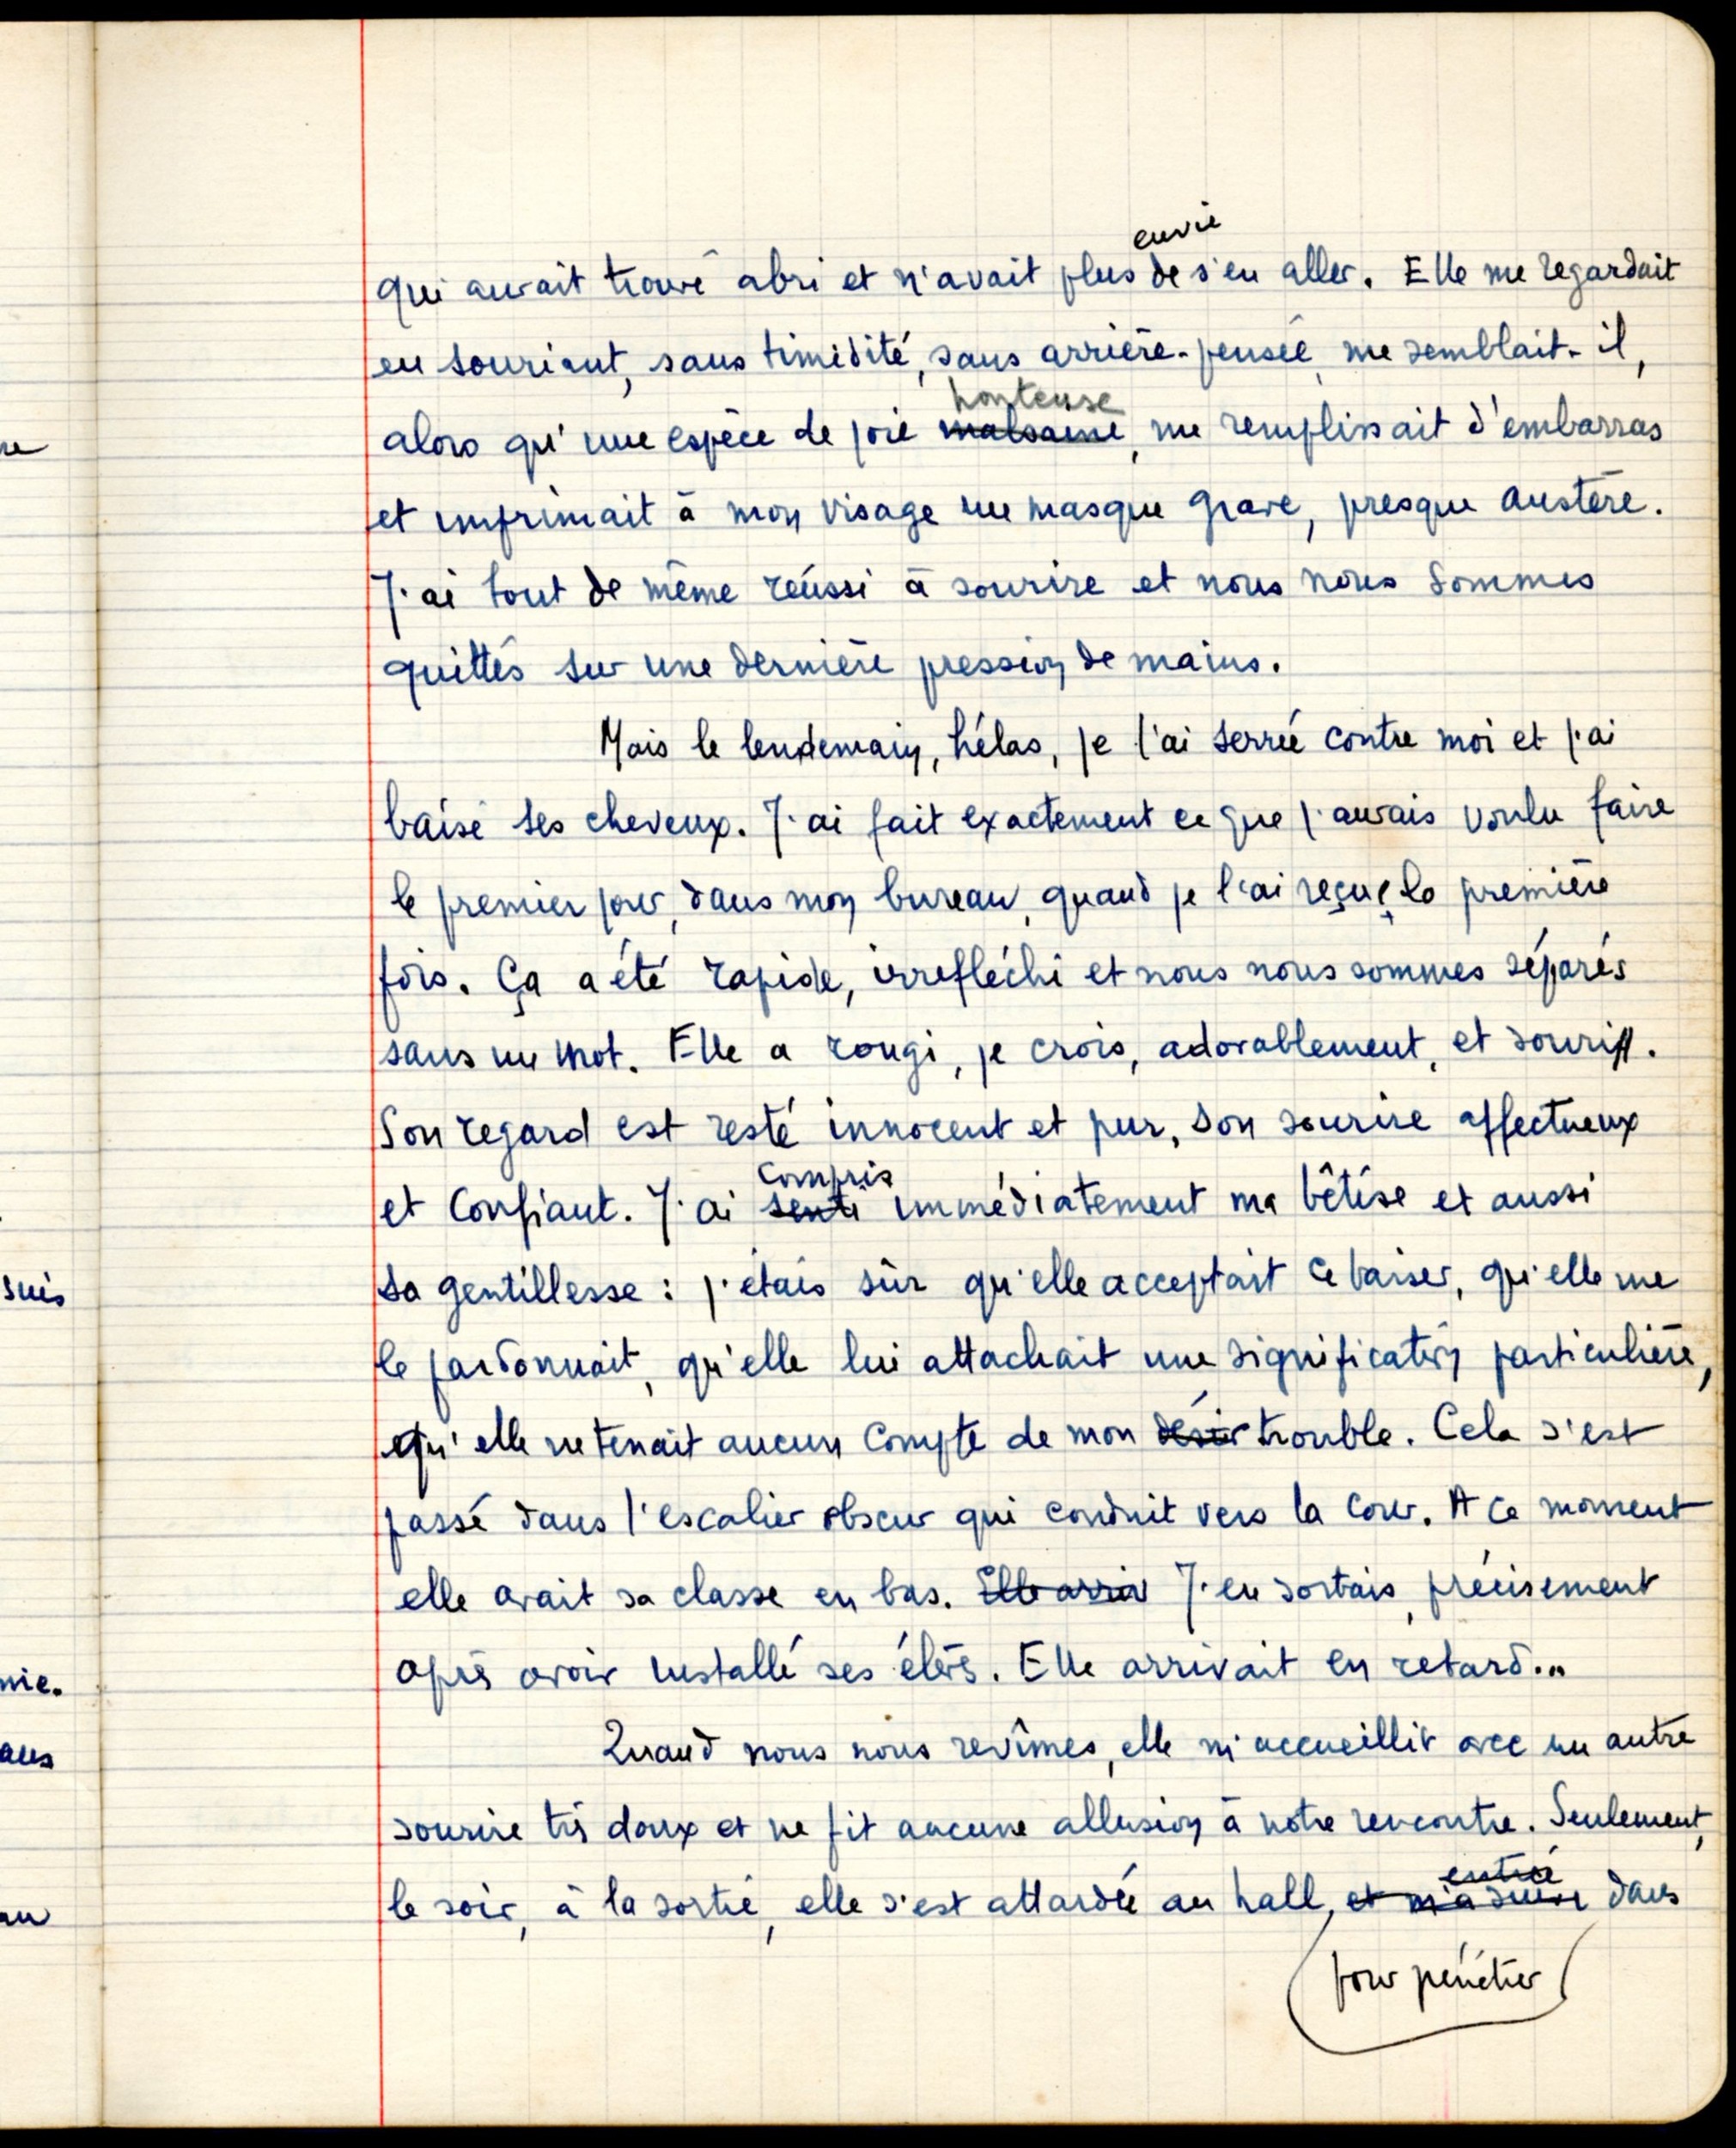 envie
qui aurait trouvé abri et n'avait plus de s'en aller. Elle me regardait
en souriant, sans timidité, sans arrière-pensée, me semblait-il,
honteuse
alors qu'une espèce de joie malsaine, me remplissait d'embarras
et imprimait à mon visage un masque grave, presque austère.
J'ai tout de même réussi à sourire et nous nous sommes
quittés sur une dernière pression de mains.
Mais le lendemain, hélas, je l'ai serrée contre moi et j'ai
baisé ses cheveux. J'ai fait exactement ce que j'aurais voulu faire
le premier jour, dans mon bureau, quand je l'ai reçue la première
fois. Ça a été rapide, irréfléchi et nous nous sommes séparés
sans un mot. Elle a rougi, je crois, adorablement, et souri.
Son regard est resté innocent et pur, son sourire affectueux
compris
et confiant. J'ai senti immédiatement ma bêtise et aussi
sa gentillesse : j'étais sûr qu'elle acceptait ce baiser, qu'elle me
le pardonnait, qu'elle lui attachait une signification particulière,
qu'elle ne tenait aucun compte de mon désir trouble. Cela s'est
passé dans l'escalier obscur qui conduit vers la cour. A ce moment
elle avait sa classe en bas. Elle arriv J'en sortais, précisement
après avoir installé ses élèves. Elle arrivait en retard...
Quand nous nous revîmes, elle m'accueillit avec un autre
sourire très doux et ne fit aucune allusion à notre rencontre. Seulement,
entrée
le soir, à la sortie, elle s'est attardée au hall, et m'a suivi dans
pour pénétrer
suis
nie.